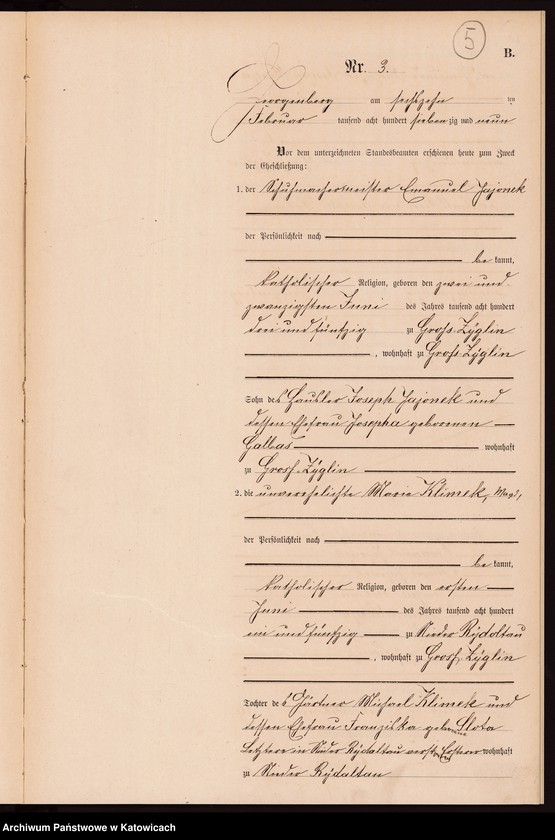 5
B.
Nr. 3.
Georgenberg am sechszehn ten
Februar tausend acht hundert sieben zig und neun
Vor dem unterzeichneten Standesbeamten erschienen heute zum Zweck
der Eheschließung:
1. der Schuhmachermeister Emanuel Jajonek
der Persönlichkeit nach
be kannt,
katholischer Religion, geboren den zwei und
zwanzigsten Juni des Jahres tausend acht hundert
drei und fünfzig zu Groß Zyglin
, wohnhaft zu Groß Zyglin
Sohn des Häusler Joseph Jajonek und
dessen Ehefrau Josepha geborenen
Galbas wohnhaft
zu Groß Zyglin
2. die unverehelichte Marie Klimek, Magd,
der Persönlichkeit nach
be kannt,
katholischer Religion, geboren den ersten
Juni des Jahres tausend acht hundert
ein und fünfzig zu Nieder Rydoltau
, wohnhaft zu Groß Zyglin
Tochter des Gärtner Michael Klimek und
dessen Ehefrau Franziska geborene Slota
Letztere in Nieder Rydaltau verstorben Ersterer wohnhaft
zu Nieder Rydaltau
Archiwum Państwowe w Katowicach